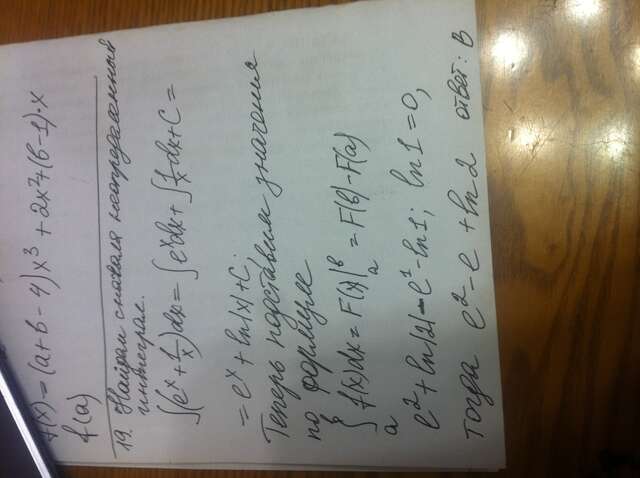 f(x) = (a+b-4)x³ + 2x²+(b-1)·x
f(a)
19. Найдем сначала неопределенный
интеграл.
∫(eˣ + 1/x)dx = ∫eˣdx + ∫1/x dx + C =
= eˣ + ln|x| + C;
Теперь подставим значения
по формуле
∫ₐᵇ f(x)dx = F(x)|ₐᵇ = F(b) - F(a)
e² + ln|2| - e¹ - ln1; ln1 = 0,
тогда e² - e + ln2 ответ: B